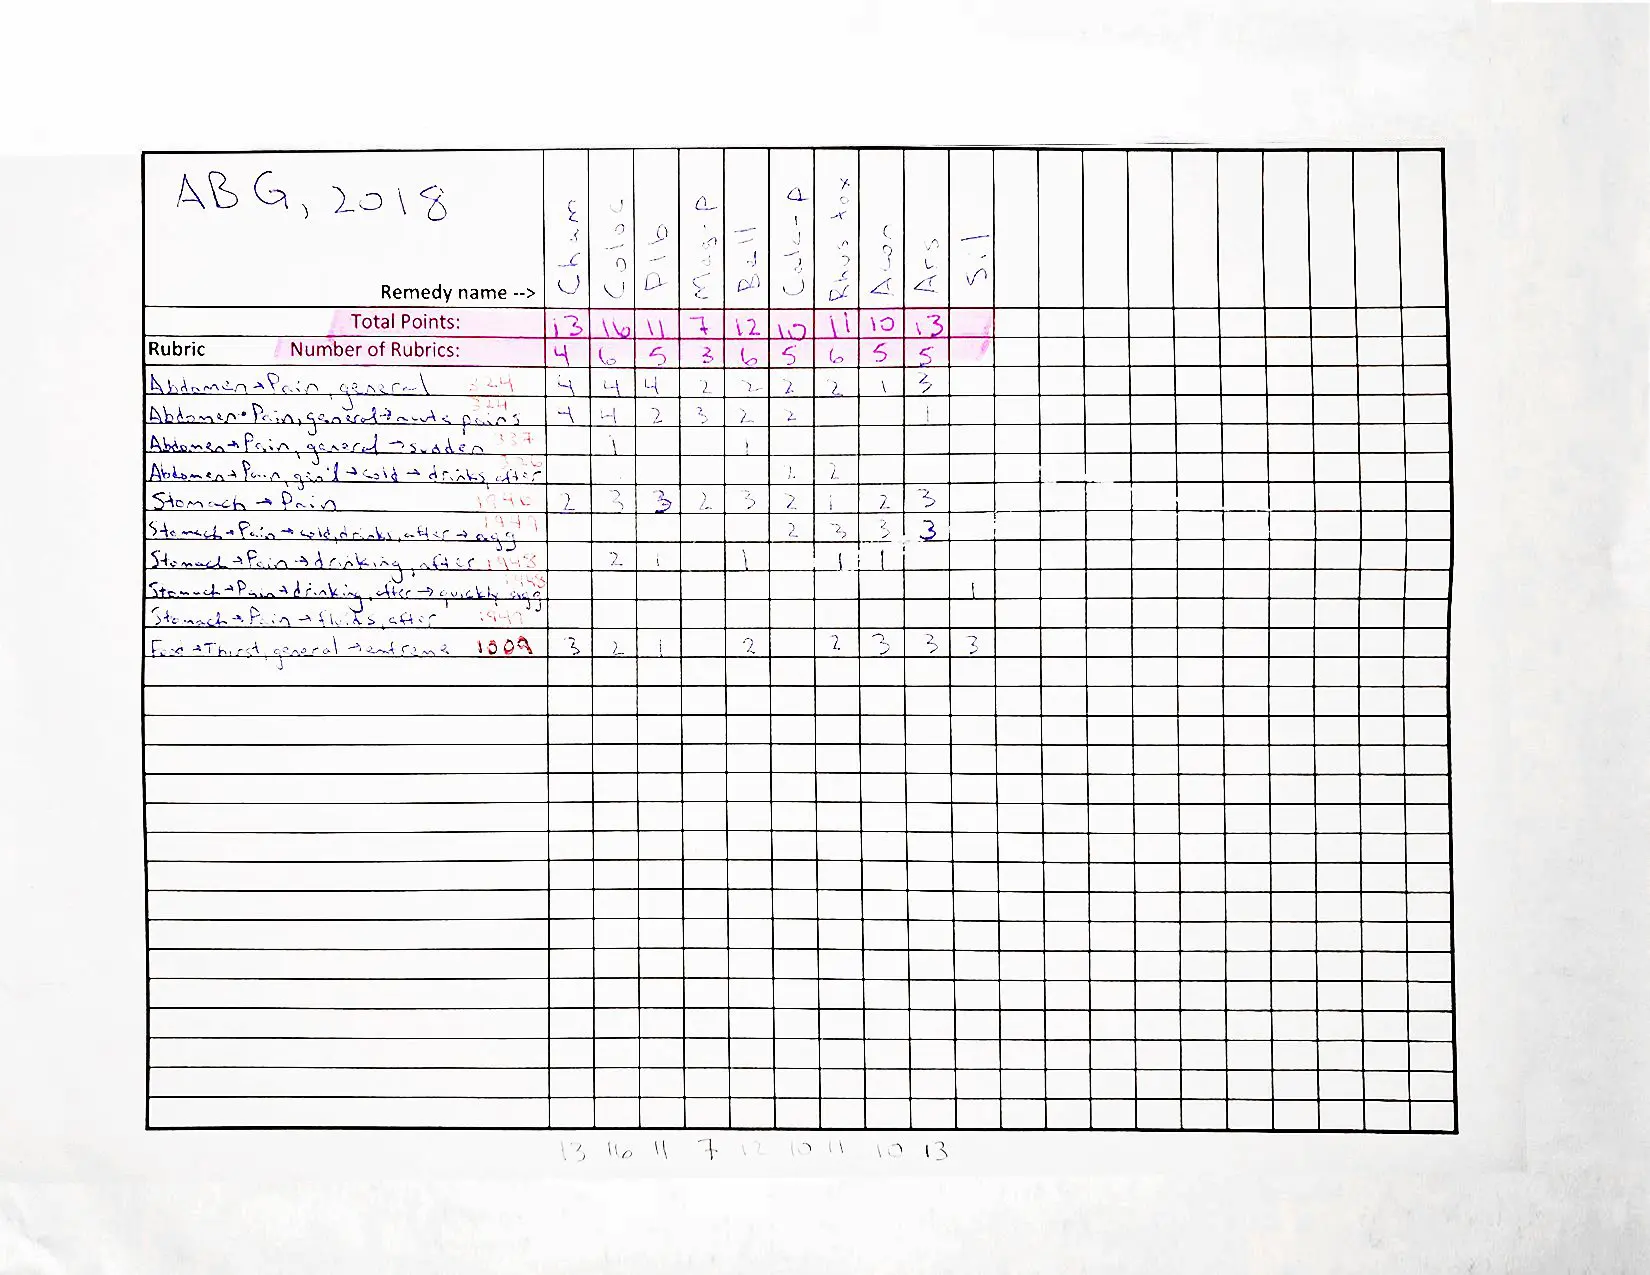 ABG, 2018
Remedy name --> Cham Coloc Plb Mag-P Bell Calc-P Rhus tox Acon Ars Sil
Total Points: 13 16 11 7 12 10 11 10 13
Rubric Number of Rubrics: 4 6 5 3 6 5 6 5 5
Abdomen→Pain, general 324 4 4 4 2 2 2 2 1 3
Abdomen→Pain, general→ pains 324 4 4 2 3 2 2 1
Abdomen→Pain, general→sudden 337 1 1
Abdomen→Pain, gen'l→cold→drinks, after 2 2
Stomach→Pain 1940 2 3 3 2 3 2 1 2 3
Stomach→Pain→cold, drinks, after→agg 1947 2 3 3 3
Stomach→Pain→drinking, after 1948 2 1 1 1 1
Stomach→Pain→drinking, after→quickly agg 1948 1
Stomach→Pain→fluids, after 1949
Food→Thirst, general→extreme 1009 3 2 1 2 2 3 3 3
13 16 11 7 12 10 11 10 13